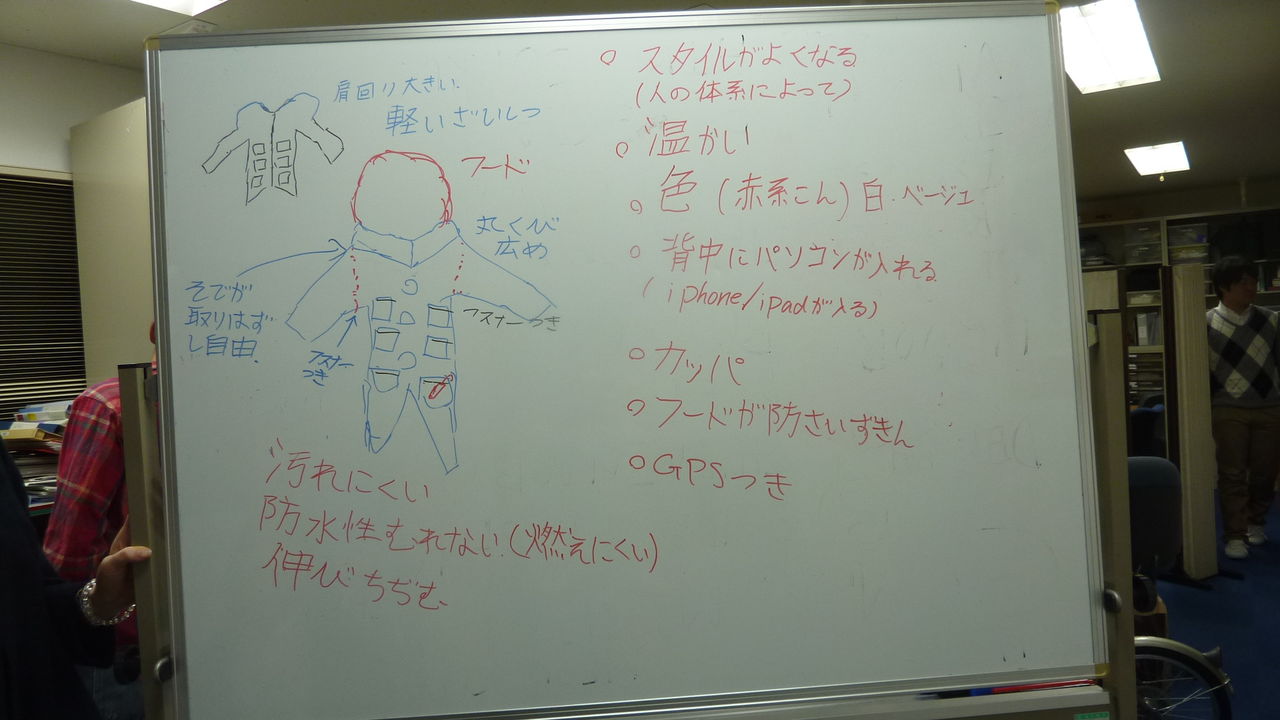 肩回り大きい.
軽いざいしつ
フード
丸くび
広め
そでが
取りはず
し自由.
ファスナー
つき
ファスナーつき
汚れにくい
防水性むれない.(燃えにくい)
伸びちぢむ
○ スタイルがよくなる
(人の体系によって)
○ 温かい
○ 色 (赤系こん) 白.ベージュ
○ 背中にパソコンが入れる
( iphone/ipadが入る)
○ カッパ
○ フードが防さいずきん
○ GPSつき